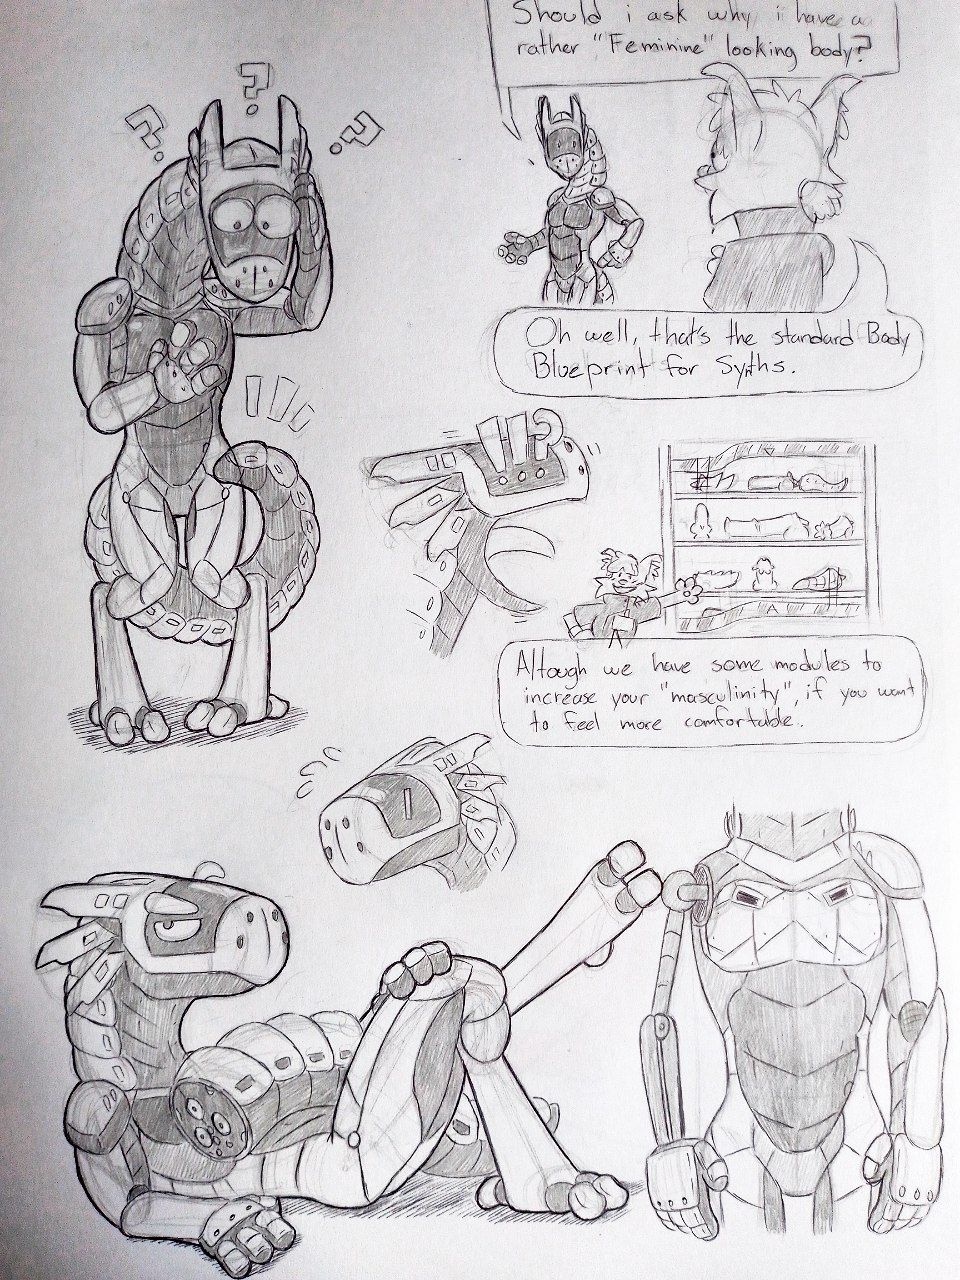 Should i ask why i have a
rather "Feminine" looking body?
Oh well, that's the standard Body
Blueprint for Synths.
Altough we have some modules to
increase your "masculinity", if you want
to feel more comfortable.
? ? ?